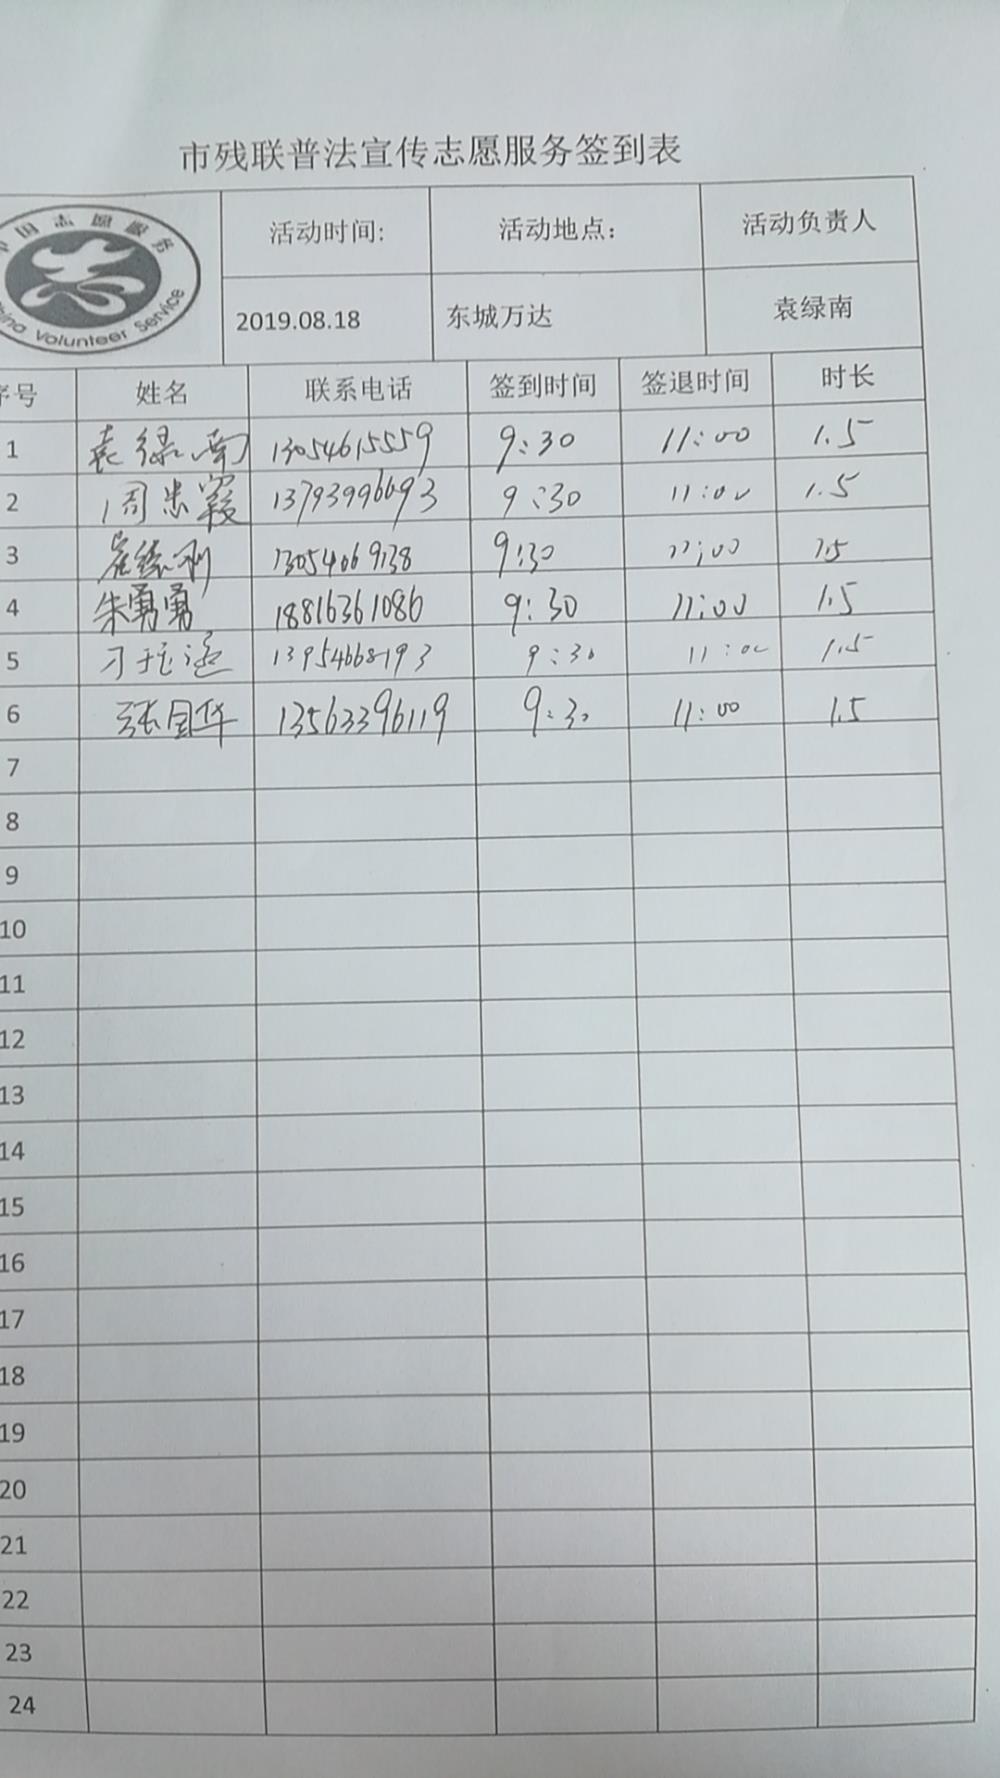 市残联普法宣传志愿服务签到表
中国志愿服务
China Volunteer Service
活动时间: 活动地点： 活动负责人
2019.08.18 东城万达 袁绿南
序号 姓名 联系电话 签到时间 签退时间 时长
1 袁绿南 13054615559 9:30 11:00 1.5
2 周忠霞 13793996693 9:30 11:00 1.5
3 13054069138 9:30 11:00 1.5
4 朱勇勇 18816361086 9:30 11:00 1.5
5 13954668193 9:30 11:00 1.5
6 张国华 13563396119 9:30 11:00 1.5
7
8
9
10
11
12
13
14
15
16
17
18
19
20
21
22
23
24